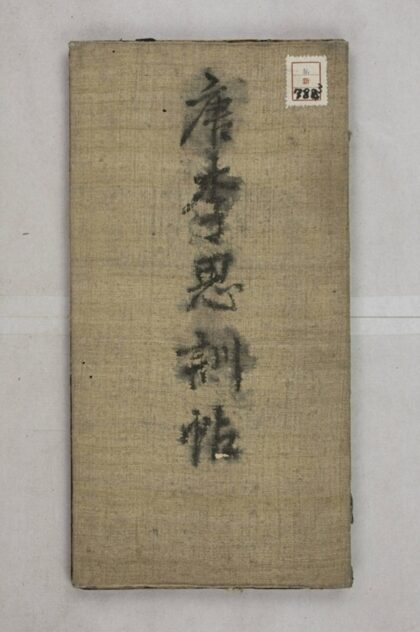 唐李思訓帖
788